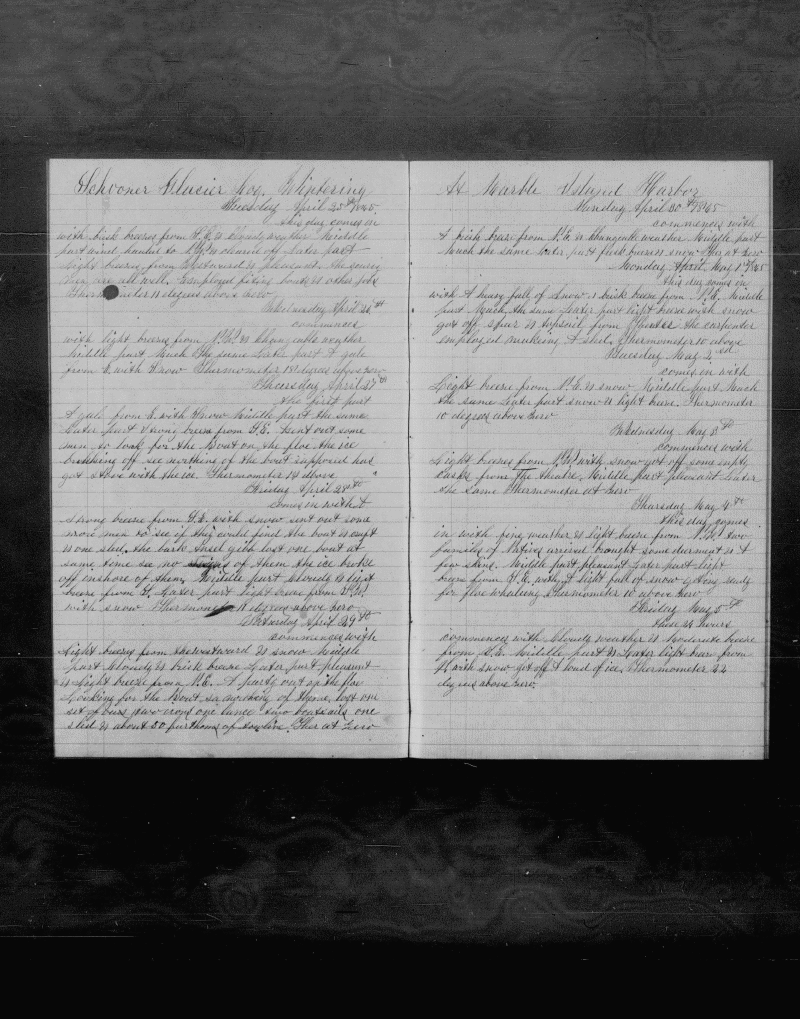 Schooner Glacier Log Wintering
Tuesday April 25th 1865
this day comes in
with brisk breeze from N.E. & Cloudy weather Middle
part wind hauled to N.W. & cleared off Later part
Light breeze from Westward & pleasant the scurvy
men are all well. Employed fixing boats & other jobs
Thermometer 12 degrees above zero
Wednesday April 26th
commences
with light breeze from N.W. & Changeable weather
Middle part Much the same Later part A gale
from N. with snow Thermometer 18 degrees above zero
Thursday April 27th
the first part
A gale from N. with snow Middle part the same
Later part Strong breeze from N.E. Sent out some
men to look for the Boat on the floe the ice
breaking off see nothing of the boat supposed has
got stove with the ice Thermometer 14 above "
Friday April 28th
comes in with A
strong breeze from N.E. with snow sent out some
more men to see if they could find the boat is empt
is one sled, the bark Ansel Gibb lost one boat at
same time see no signs of them the ice broke
off inshore of them Middle part Cloudy & light
breeze from N. Later part light breeze from N.W.
with snow Thermometer 11 degrees above zero
Saturday April 29th
commences with
Light breeze from the westward & snow Middle
part Cloudy & brisk breeze Later part pleasant
& Light breeze from N.E. A party out up the floe
Looking for the Boat saw nothing of them, lost one
set of oars two irons one lance two boatsails one
sled & about 30 furthoms of towline. Ther at Zero
At Marble Island Harbor
Sunday April 30th 1865
commences with
A brisk breeze from N.E. & Changeable weather Middle part
Much the same Later part fresh breeze & snow Ther at Zero
Monday April May 1st 1865
this day comes in
with A heavy fall of snow & brisk breeze from N.E. Middle
part Much the same Later part light breeze with snow
got off spar & topsail from the carpenter
employed making A sled. Thermometer 10 above
Tuesday May 2nd
comes in with
Light breeze from N.E. & snow Middle part Much
the same Later part snow & light breeze. Thermometer
10 degrees above zero
Wednesday May 3d
commences with
Light breezes from N.W. with snow got off some empty
Casks from the theatre, Middle part pleasant Later
the same Thermometer at Zero
Thursday May 4th
this day comes
in with fine weather & light breeze from N.W. two
families of Natives arrived brought some dear meat & A
few skins. Middle part pleasant Later part light
breeze from N.E. with A light fall of snow getting ready
for floe whaleing Thermometer 10 above Zero
Friday May 5th
these 24 hours
commences with Cloudy weather & Moderate breeze
from N.E. Middle part & Later light breeze from
N. with snow got off A load of ice, Thermometer 22
degrees above zero.